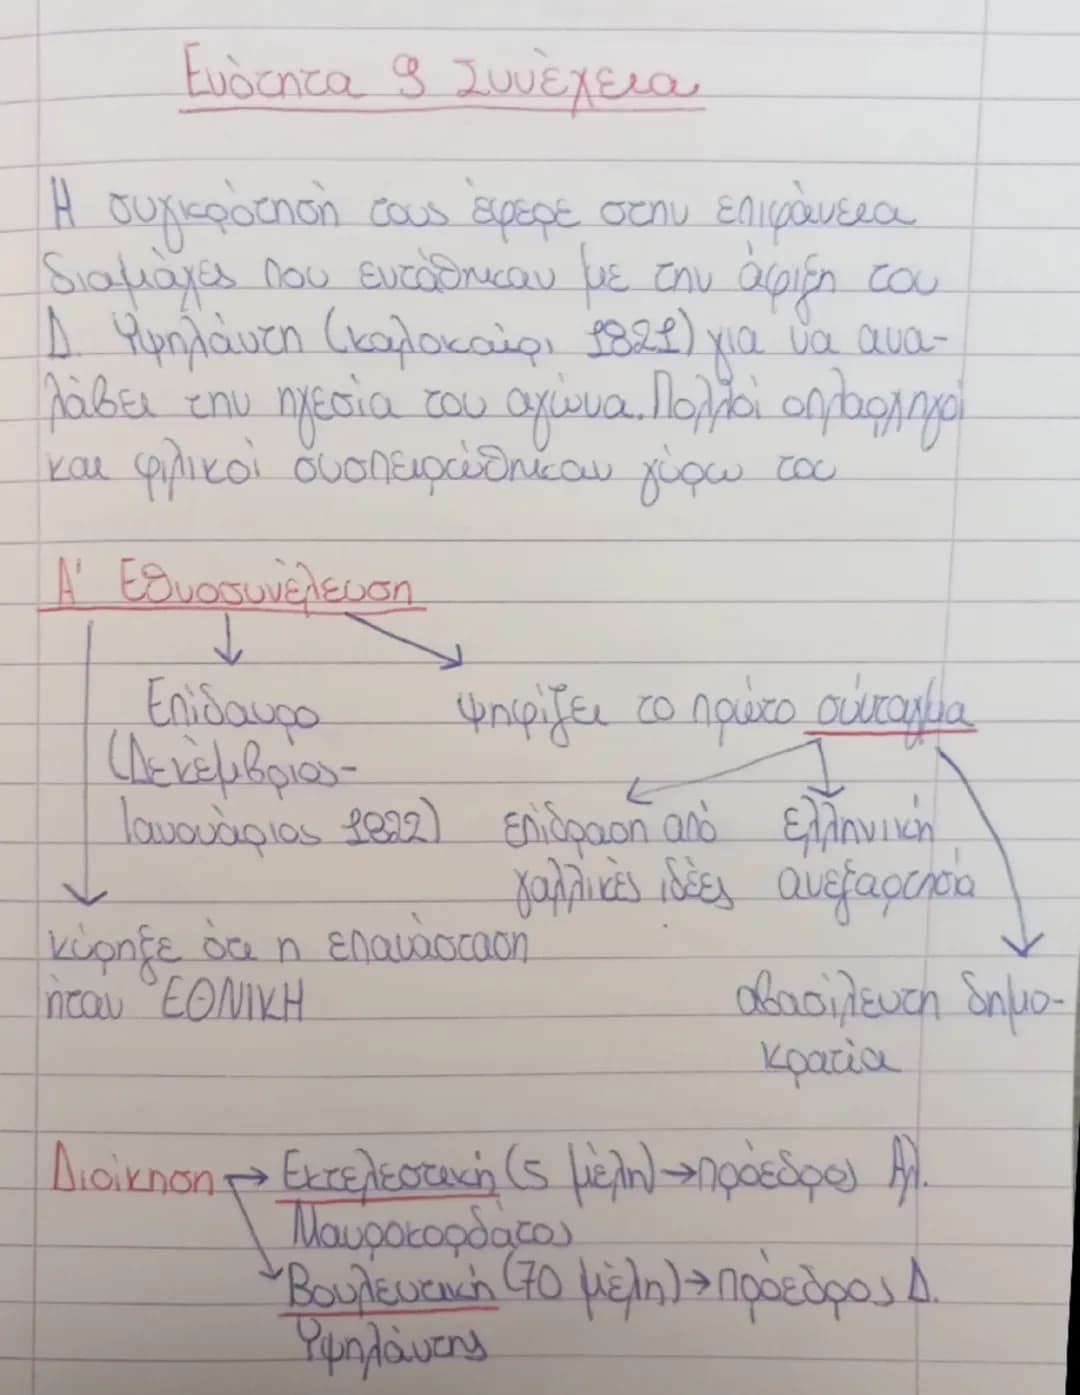 Ενότητα 9 Συνέχεια
Η συγκρότησή τους έφερε στην επιφάνεια
διαμάχες που εντάθηκαν με την άφιξη του
Δ. Υψηλάντη (καλοκαίρι 1821) για να ανα-
λάβει την ηγεσία του αγώνα. Πολλοί οπλαρχηγοί
και φιλικοί συσπειρώθηκαν γύρω του
Α' Εθνοσυνέλευση
Επίδαυρο
ψηφίζει το πρώτο σύνταγμα
(Δεκέμβριος-
Ιανουάριος 1822)
επίδραση από
γαλλικές ιδέες
ελληνική
ανεξαρτησία
κύρηξε ότι η επανάσταση
ήταν ΕΘΝΙΚΗ
αβασίλευτη δημο-
κρατία
Διοίκηση → Εκτελεστική (5 μέλη) → πρόεδρος Αλ.
Μαυροκορδάτος
Βουλευτική (70 μέλη) → πρόεδρος Δ.
Υψηλάντης